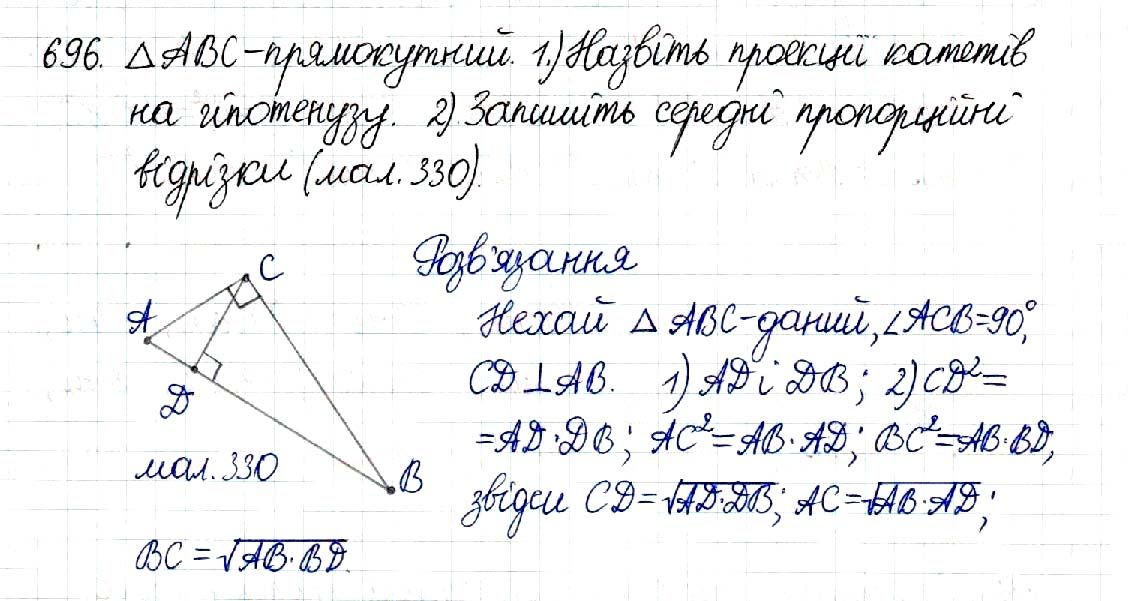 696. △ABC-прямокутний. 1.) Назвіть проекції катетів
на гіпотенузу. 2) Запишіть середні пропорційні
відрізки (мал. 330).
Розв'язання
C
A
D
B
мал. 330
Нехай △ ABC-даний, ∠ACB=90°,
CD⊥AB. 1) AD і DB; 2) CD²=
=AD·DB; AC²=AB·AD; BC²=AB·BD,
звідси CD=√AD·DB; AC=√AB·AD;
BC=√AB·BD.